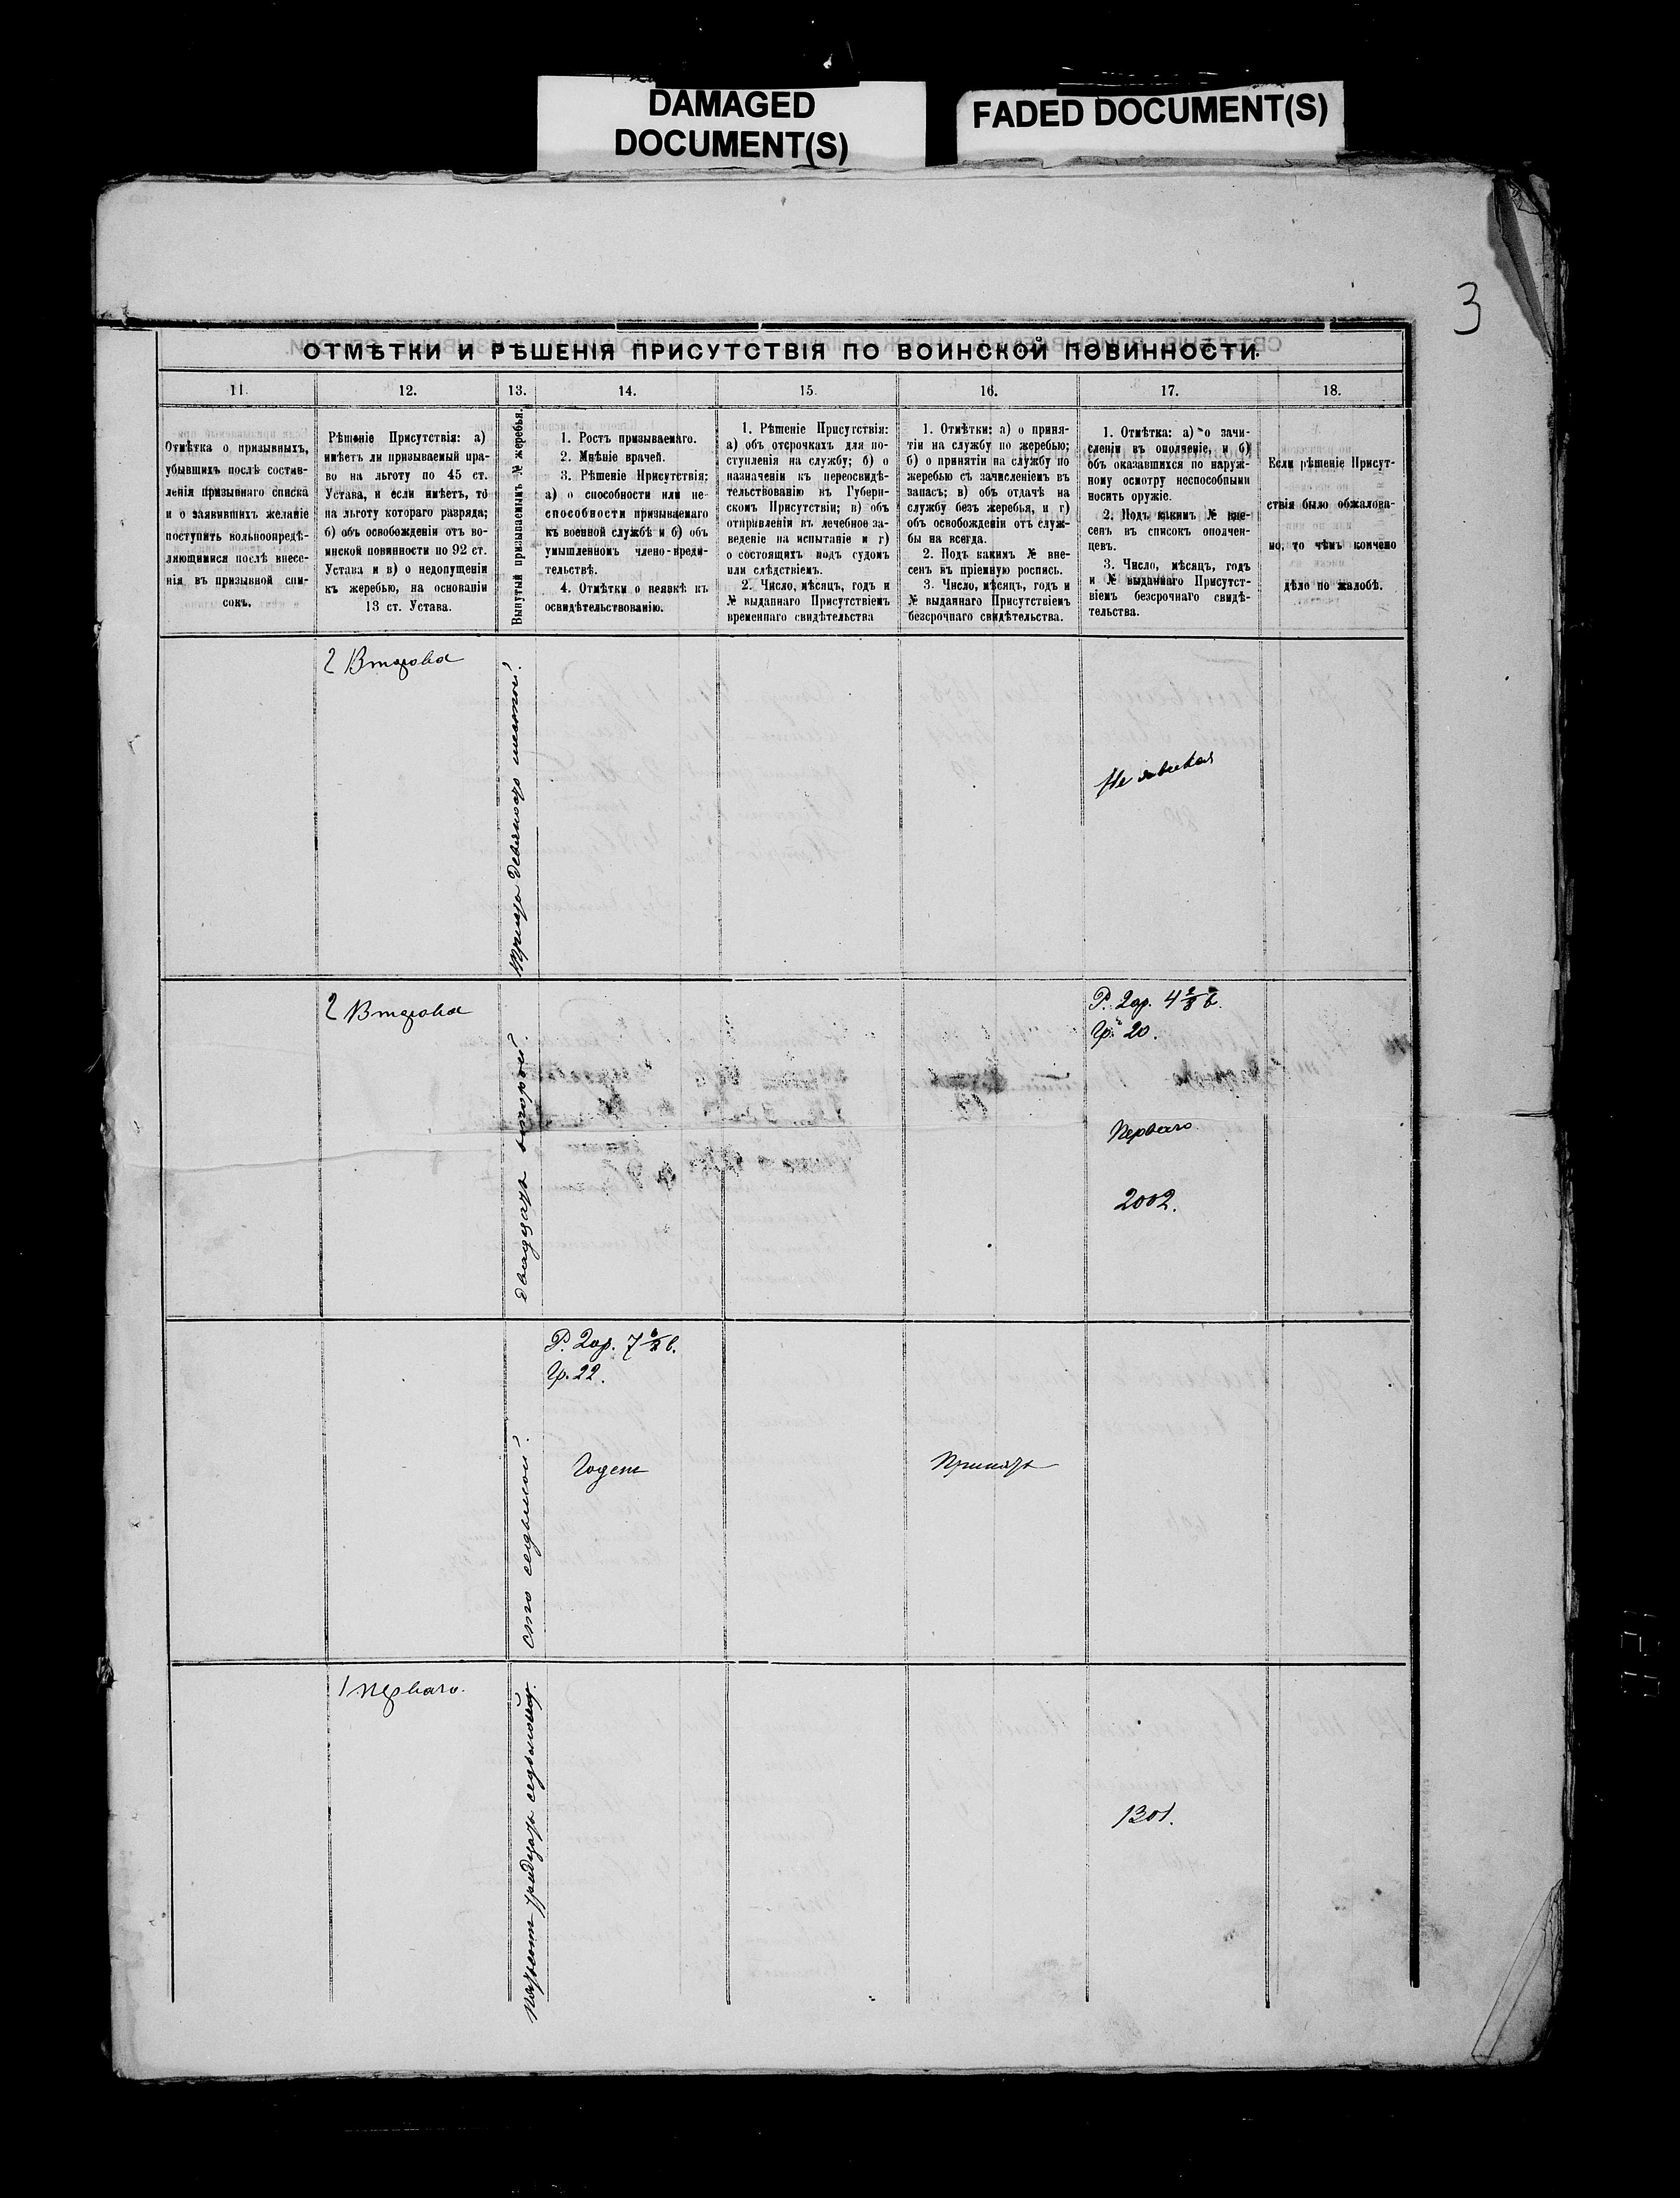 DAMAGED
DOCUMENT(S)
FADED DOCUMENT(S)
3
ОТМѢТКИ И РѢШЕНІЯ ПРИСУТСТВІЯ ПО ВОИНСКОЙ ПОВИННОСТИ.
11.
12.
13.
14.
15.
16.
17.
18.
Отмѣтка о призывныхъ,
убывшихъ послѣ состав-
ленія призывнаго списка
и о заявившихъ желаніе
поступить вольноопредѣ-
ляющимися послѣ внесе-
нія въ призывной спи-
сокъ.
Рѣшеніе Присутствія: а)
имѣетъ ли призываемый пра-
во на льготу по 45 ст.
Устава, и если имѣетъ, то
на льготу котораго разряда;
б) объ освобожденіи отъ во-
инской повинности по 92 ст.
Устава и в) о недопущеніи
къ жеребью, на основаніи
13 ст. Устава.
Вынутый призываемымъ № жеребья.
1. Ростъ призываемаго.
2. Мнѣніе врачей.
3. Рѣшеніе Присутствія:
а) о способности или не-
способности призываемаго
къ военной службѣ и б) объ
умышленномъ члено-вреди-
тельствѣ.
4. Отмѣтки о неявкѣ къ
освидѣтельствованію.
1. Рѣшеніе Присутствія:
а) объ отсрочкахъ для по-
ступленія на службу; б) о
назначеніи къ переосвидѣ-
тельствованію въ Губерн-
скомъ Присутствіи; в) объ
отправленіи въ лечебное за-
веденіе на испытаніе и г)
о состоящихъ подъ судомъ
или слѣдствіемъ.
2. Число, мѣсяцъ, годъ и
№ выданнаго Присутствіемъ
временнаго свидѣтельства
1. Отмѣтки: а) о приня-
тіи на службу по жеребью;
б) о принятіи на службу по
жеребью съ зачисленіемъ въ
запасъ; в) объ отдачѣ на
службу безъ жеребья, и г)
объ освобожденіи отъ служ-
бы на всегда.
2. Подъ какимъ № вне-
сенъ въ пріемную роспись.
3. Число, мѣсяцъ, годъ и
№ выданнаго Присутствіемъ
безсрочнаго свидѣтельства.
1. Отмѣтка: а) о зачи-
сленіи въ ополченіе, и б)
объ оказавшихся по наруж-
ному осмотру неспособными
носить оружіе.
2. Подъ какимъ № вне-
сенъ въ списокъ ополчен-
цевъ.
3. Число, мѣсяцъ, годъ
и № выданнаго Присутст-
віемъ безсрочнаго свидѣ-
тельства.
Если рѣшеніе Присут-
ствія было обжалова-
но, то чѣмъ кончено
дѣло по жалобѣ.
2 Втораго
девяносто шестой.
Не явился
2 Втораго
двадцать второй.
Р. 2ар. 4 2/8 в.
Гр. 20.
Перваго
2002.
сто седьмой.
Р. 2ар. 7 в.
Гр. 22.
Годенъ
Принятъ
1 перваго.
тридцать седьмой.
1301.